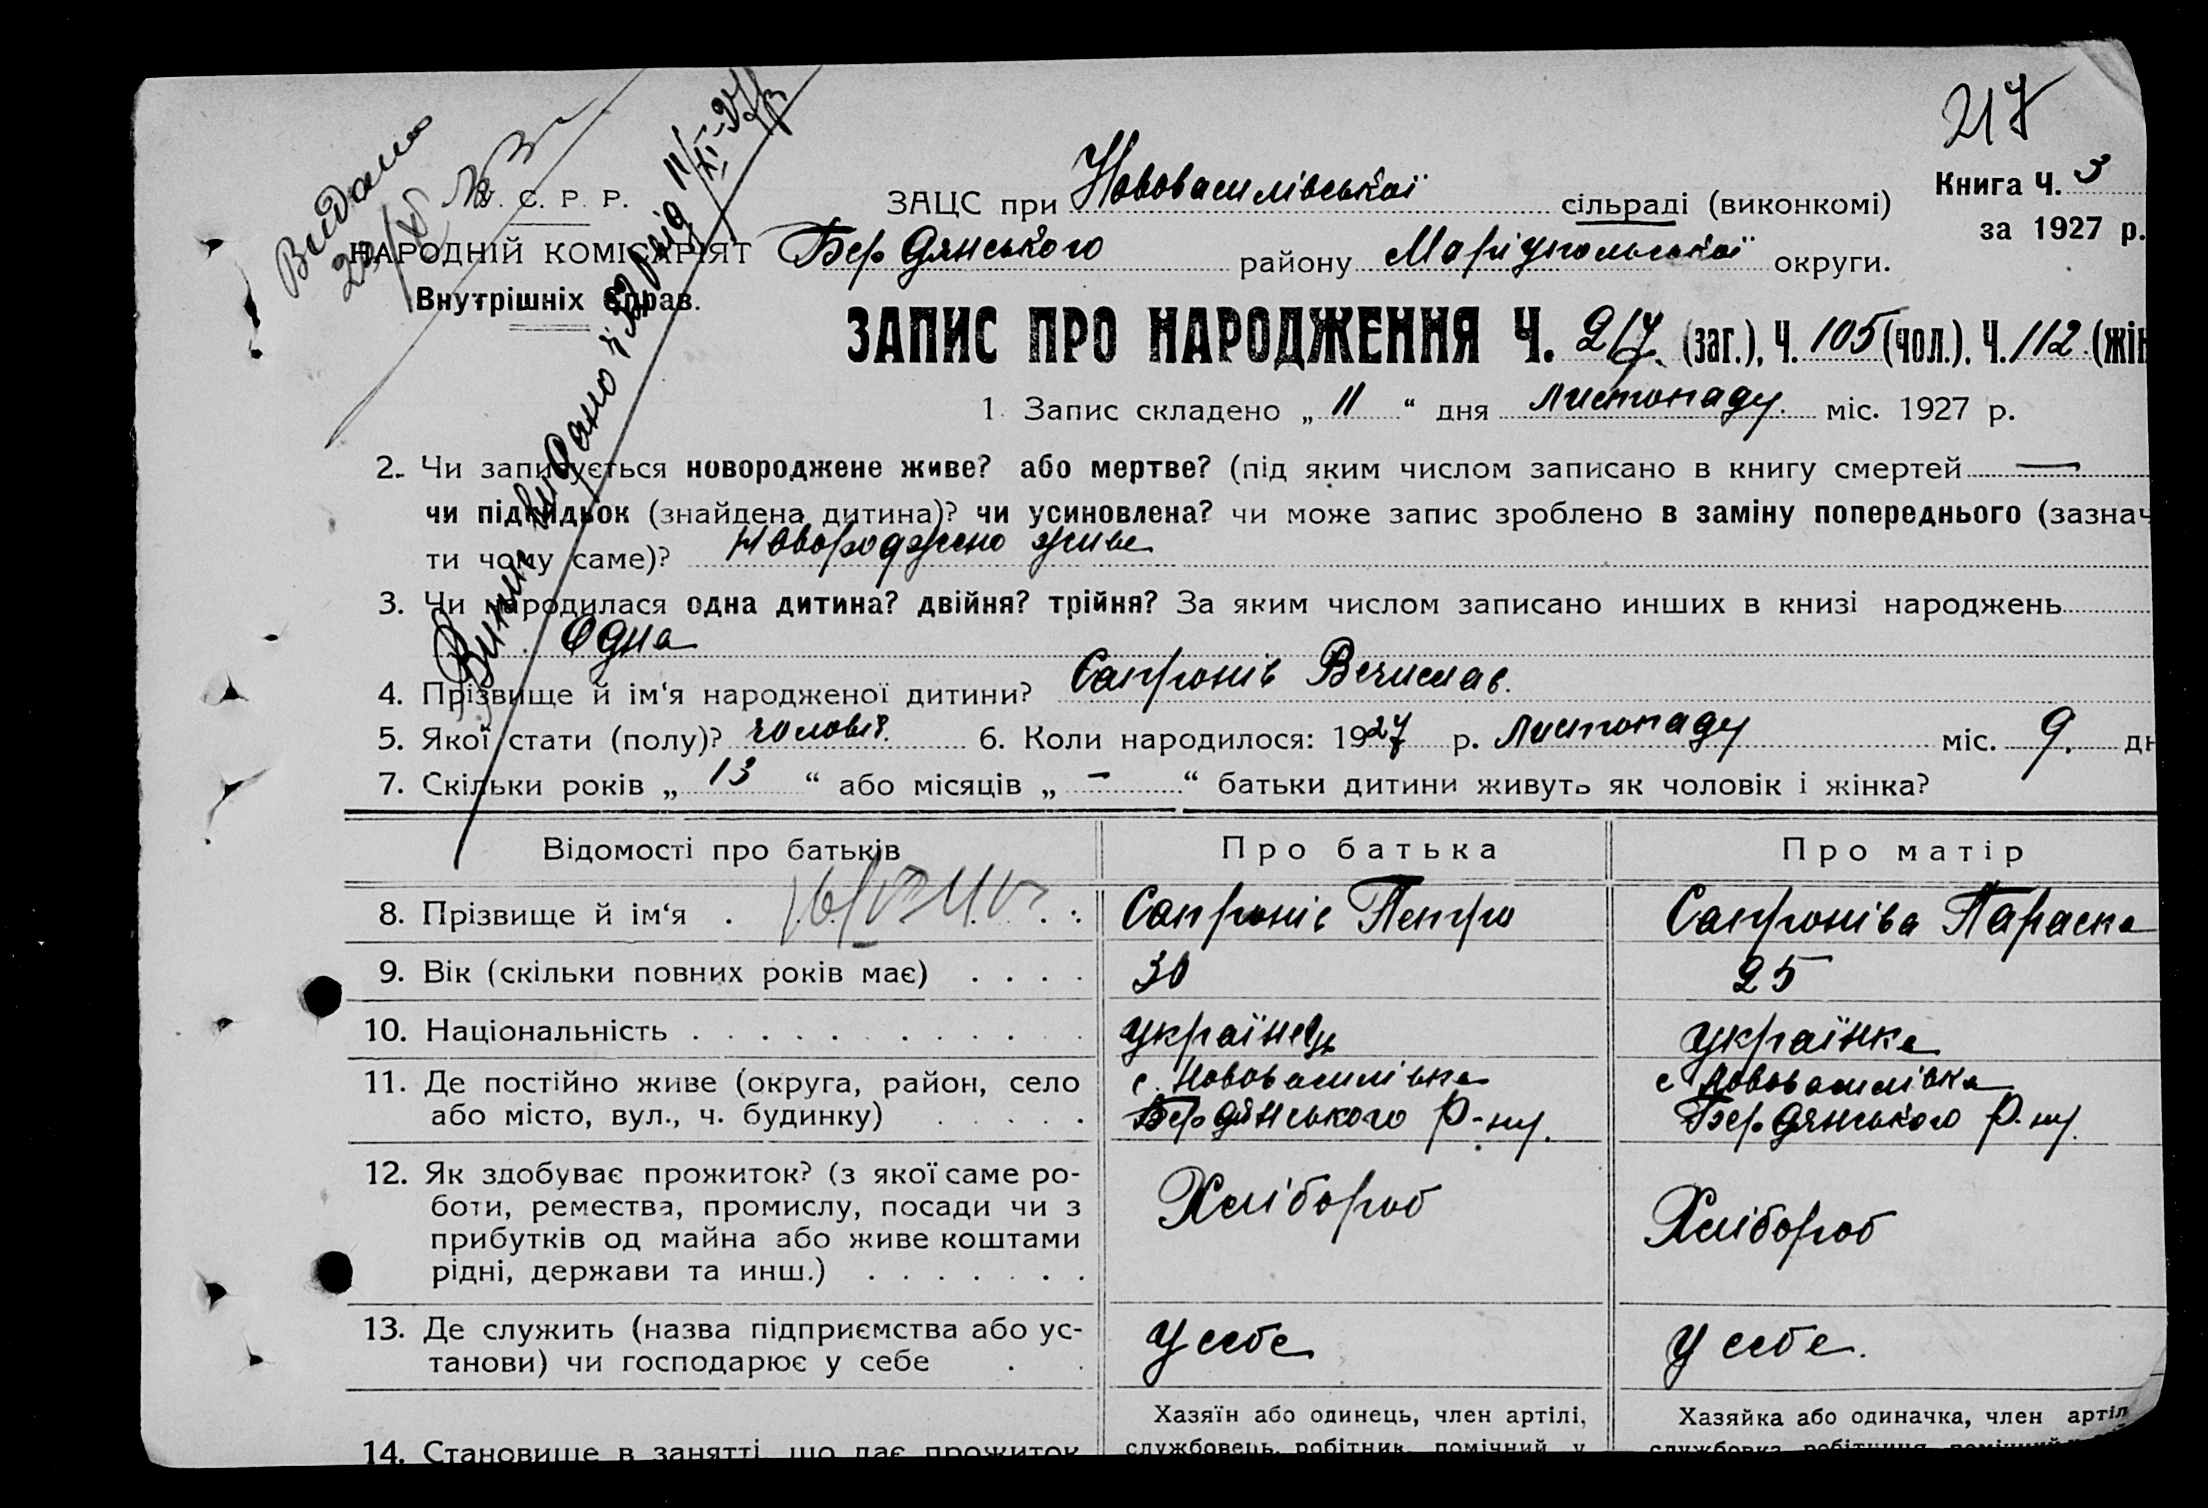 217
Видано
У. С. Р. Р.
НАРОДНІЙ КОМІСАРІЯТ
Внутрішніх Справ.
Випис видано ч 320 від 11/XI-27 р
ЗАЦС при Нововасилівської сільраді (виконкомі)
Книга Ч. 3
за 1927 р.
Бердянського району Маріупольської округи.
ЗАПИС ПРО НАРОДЖЕННЯ Ч. 217 (заг.), Ч. 105 (чол.). Ч. 112 (жін
1. Запис складено „ 11 “ дня листопаду. міс. 1927 р.
2. Чи записується новороджене живе? або мертве? (під яким числом записано в книгу смертей —
чи підкидьок (знайдена дитина)? чи усиновлена? чи може запис зроблено в заміну попереднього (зазнач
ти чому саме)? новороджено живе
3. Чи народилася одна дитина? двійня? трійня? За яким числом записано инших в книзі народжень
Одна
4. Прізвище й ім‘я народженої дитини? Сапронів Вечислав.
5. Якої стати (полу)? чоловіч. 6. Коли народилося: 1927 р. листопаду міс. 9. дн
7. Скільки років „ 13 “ або місяців „ – “ батьки дитини живуть як чоловік і жінка?
Відомості про батьків Про батька Про матір
8. Прізвище й ім‘я . Сапронів Петро Сапроніва Параска
9. Вік (скільки повних років має) . . . . 30 25
10. Національність . . . . . . . . . . . . українець українка
11. Де постійно живе (округа, район, село с. Нововасилівка с Нововасилівка
або місто, вул., ч. будинку) . . . . . Бердянського р-ну. Бердянського р-ну.
12. Як здобуває прожиток? (з якої саме ро-
боти, ремества, промислу, посади чи з Хлібороб Хлібороб
прибутків од майна або живе коштами
рідні, держави та инш.) . . . . . . .
13. Де служить (назва підприємства або ус- У себе У себе.
танови) чи господарює у себе . .
Хазяїн або одинець, член артілі, Хазяйка або одиначка, член артіл
14. Становище в занятті, що дає прожиток службовець, робітник, помічний у службовка робітниця помічний